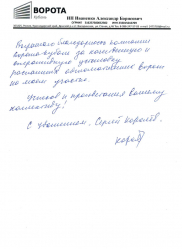 ВОРОТА
Кубани
ИП Иваненко Александр Борисович
Выражаю благодарность компании
Ворота Кубани за качественную и
оперативную установку
распашных автоматических ворот
на моем участке.
Успехов и процветания вашему
коллективу!
С уважением, Сергей Коротв